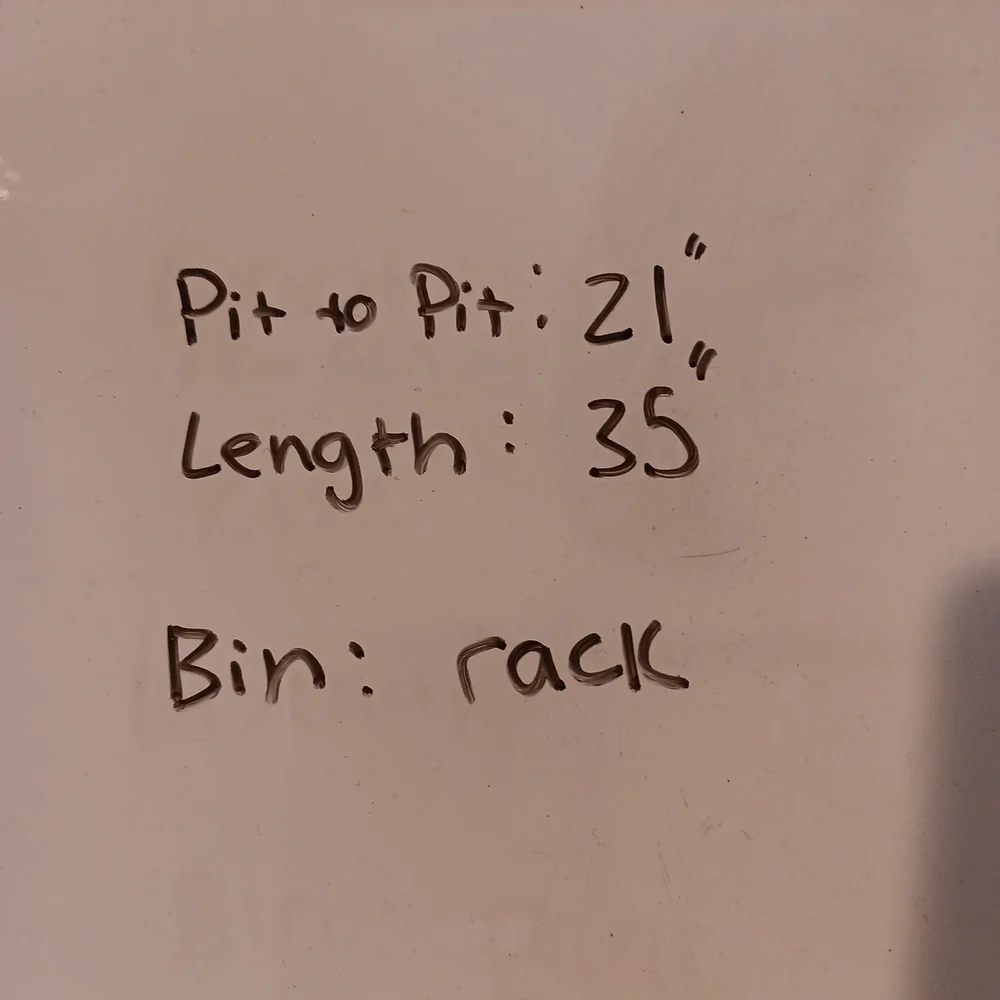 Pit to Pit: 21"
Length: 35"
Bin: rack